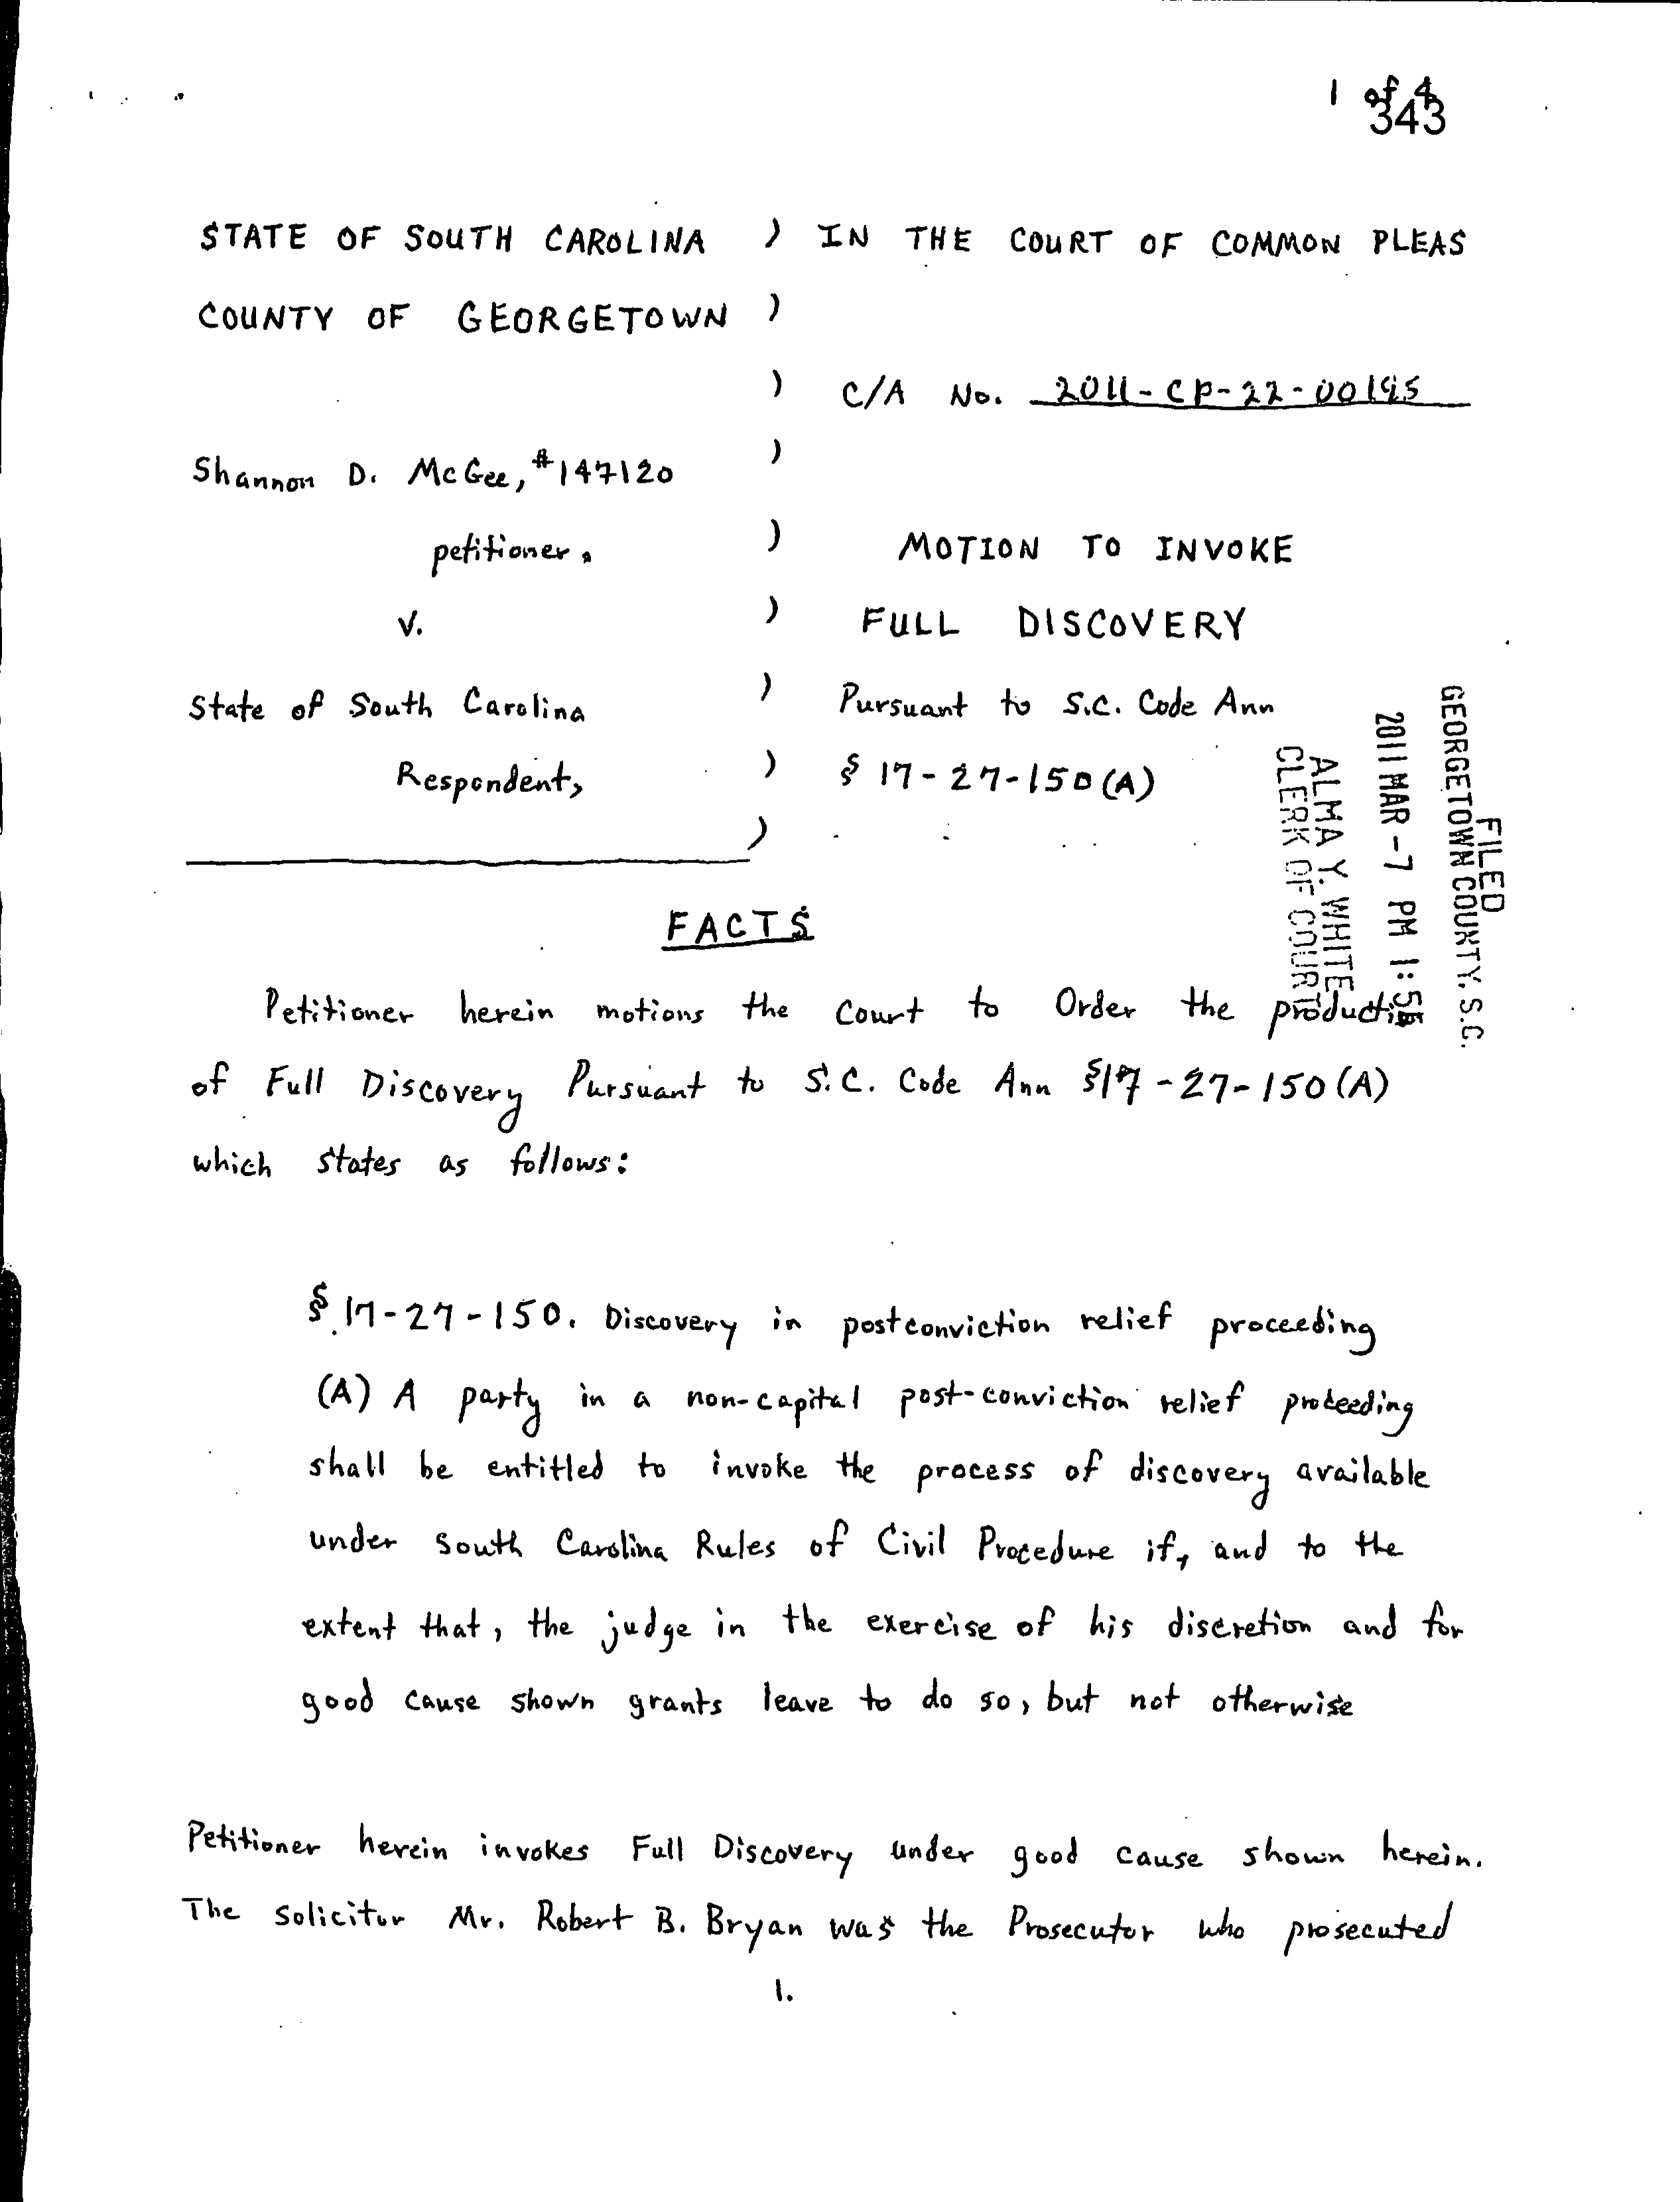 1 of 4
343
STATE OF SOUTH CAROLINA ) IN THE COURT OF COMMON PLEAS
COUNTY OF GEORGETOWN )
) C/A No. 2011-CP-22-00195
Shannon D. McGee, #147120 )
petitioner, ) MOTION TO INVOKE
v. ) FULL DISCOVERY
State of South Carolina ) Pursuant to S.C. Code Ann
Respondent, ) § 17-27-150(A)
)
FILED
GEORGETOWN COUNTY, S.C.
2011 MAR -7 PM 1:55
ALMA Y. WHITE
CLERK OF COURT
FACTS
Petitioner herein motions the Court to Order the production
of Full Discovery Pursuant to S.C. Code Ann §17-27-150(A)
which states as follows:
§ 17-27-150. Discovery in postconviction relief proceeding
(A) A party in a non-capital post-conviction relief proceeding
shall be entitled to invoke the process of discovery available
under South Carolina Rules of Civil Procedure if, and to the
extent that, the judge in the exercise of his discretion and for
good cause shown grants leave to do so, but not otherwise
Petitioner herein invokes Full Discovery under good cause shown herein.
The Solicitor Mr. Robert B. Bryan was the Prosecutor who prosecuted
1.